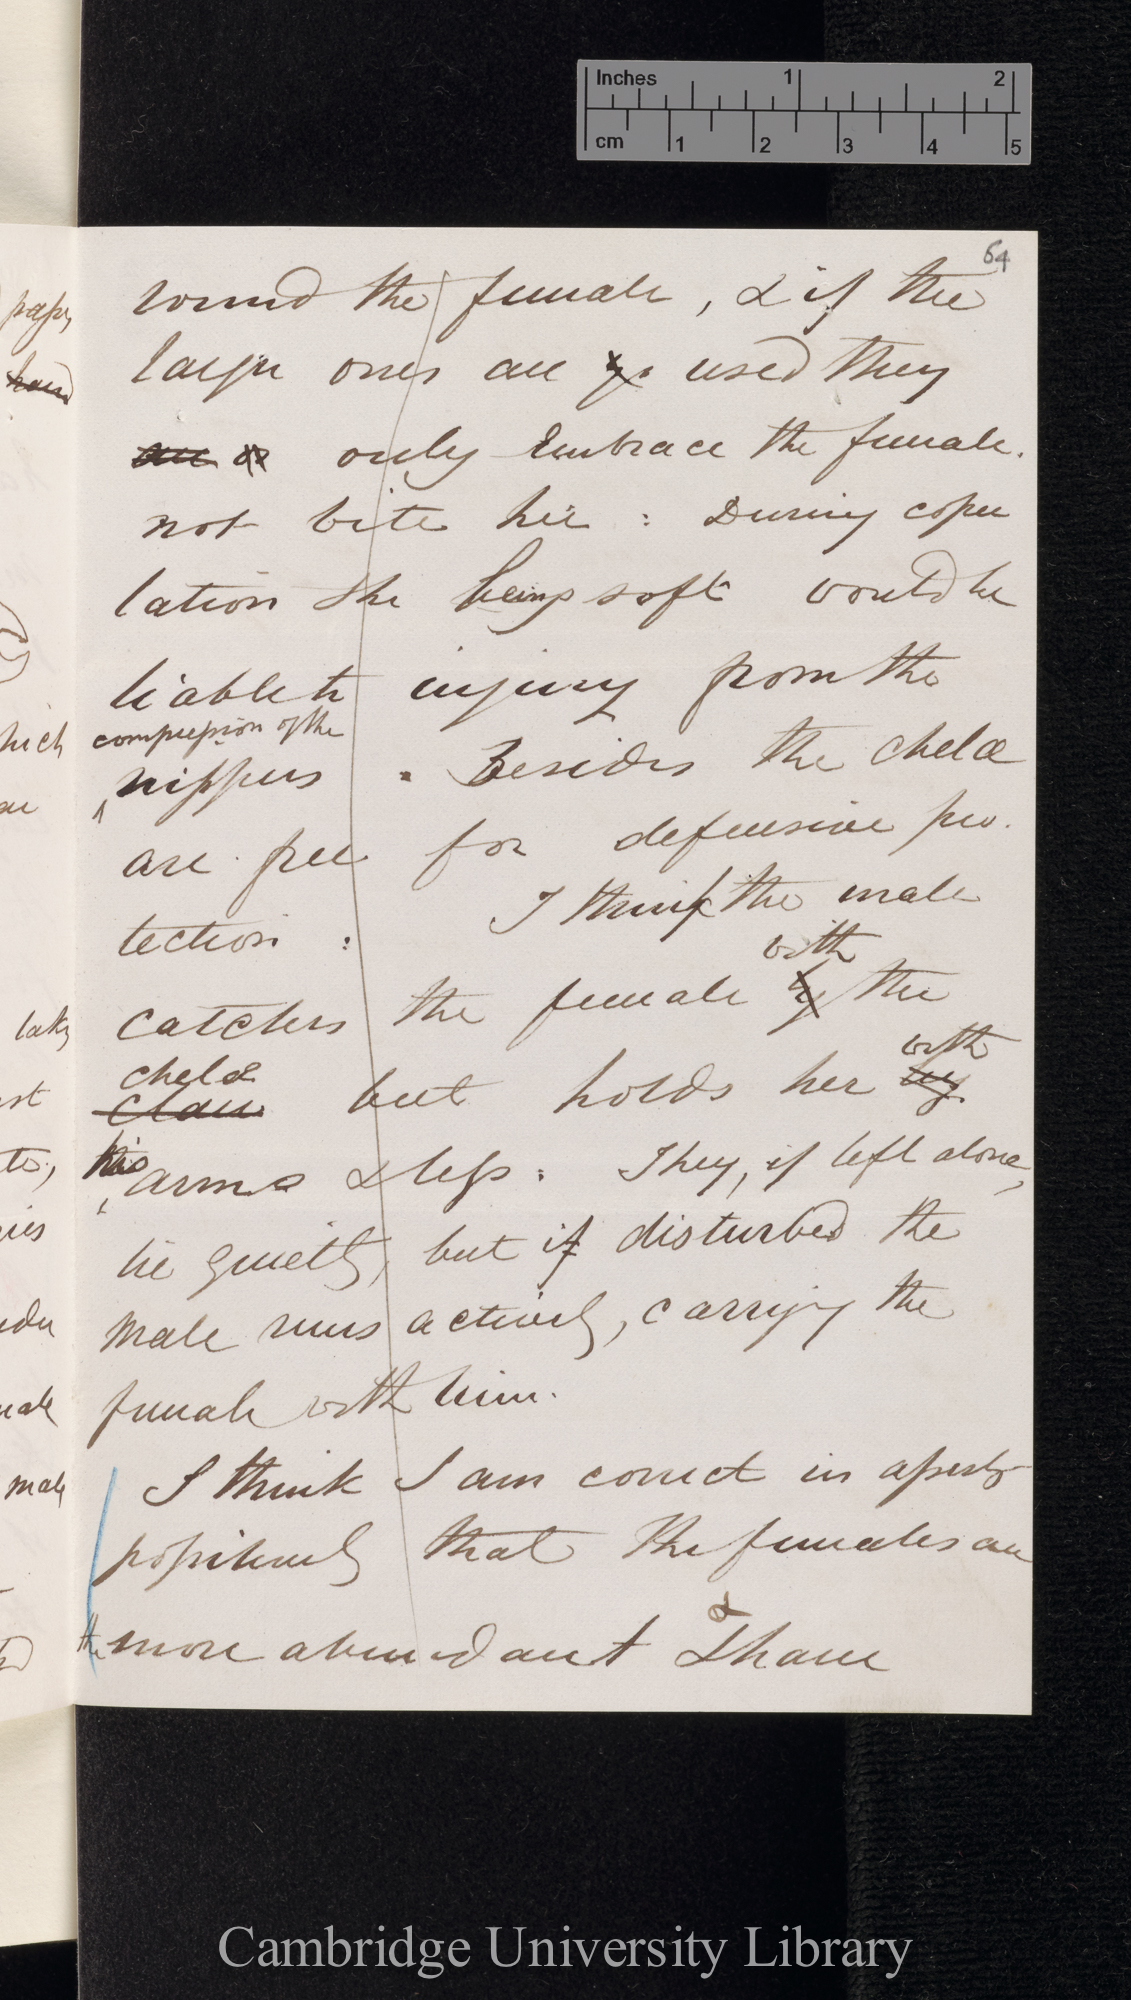 Inches 1 2
cm 1 2 3 4 5
64
round the female, & if the
large ones are used they
only embrace the female.
not bite her: During copu
lation she being soft would be
liable to injury from the
compression of the
nippers. Besides the chelæ
are free for defensive pro.
tection: I think the male
with
catches the female by the
chelæ with
claw but holds her by
his arms & legs: They, if left alone,
lie quietly, but if disturbed the
male runs actively, carryiy the
female with him.
I think I am correct in assertg
possitively that the females are
the more abundant & I have
hich
lake
male
Cambridge University Library